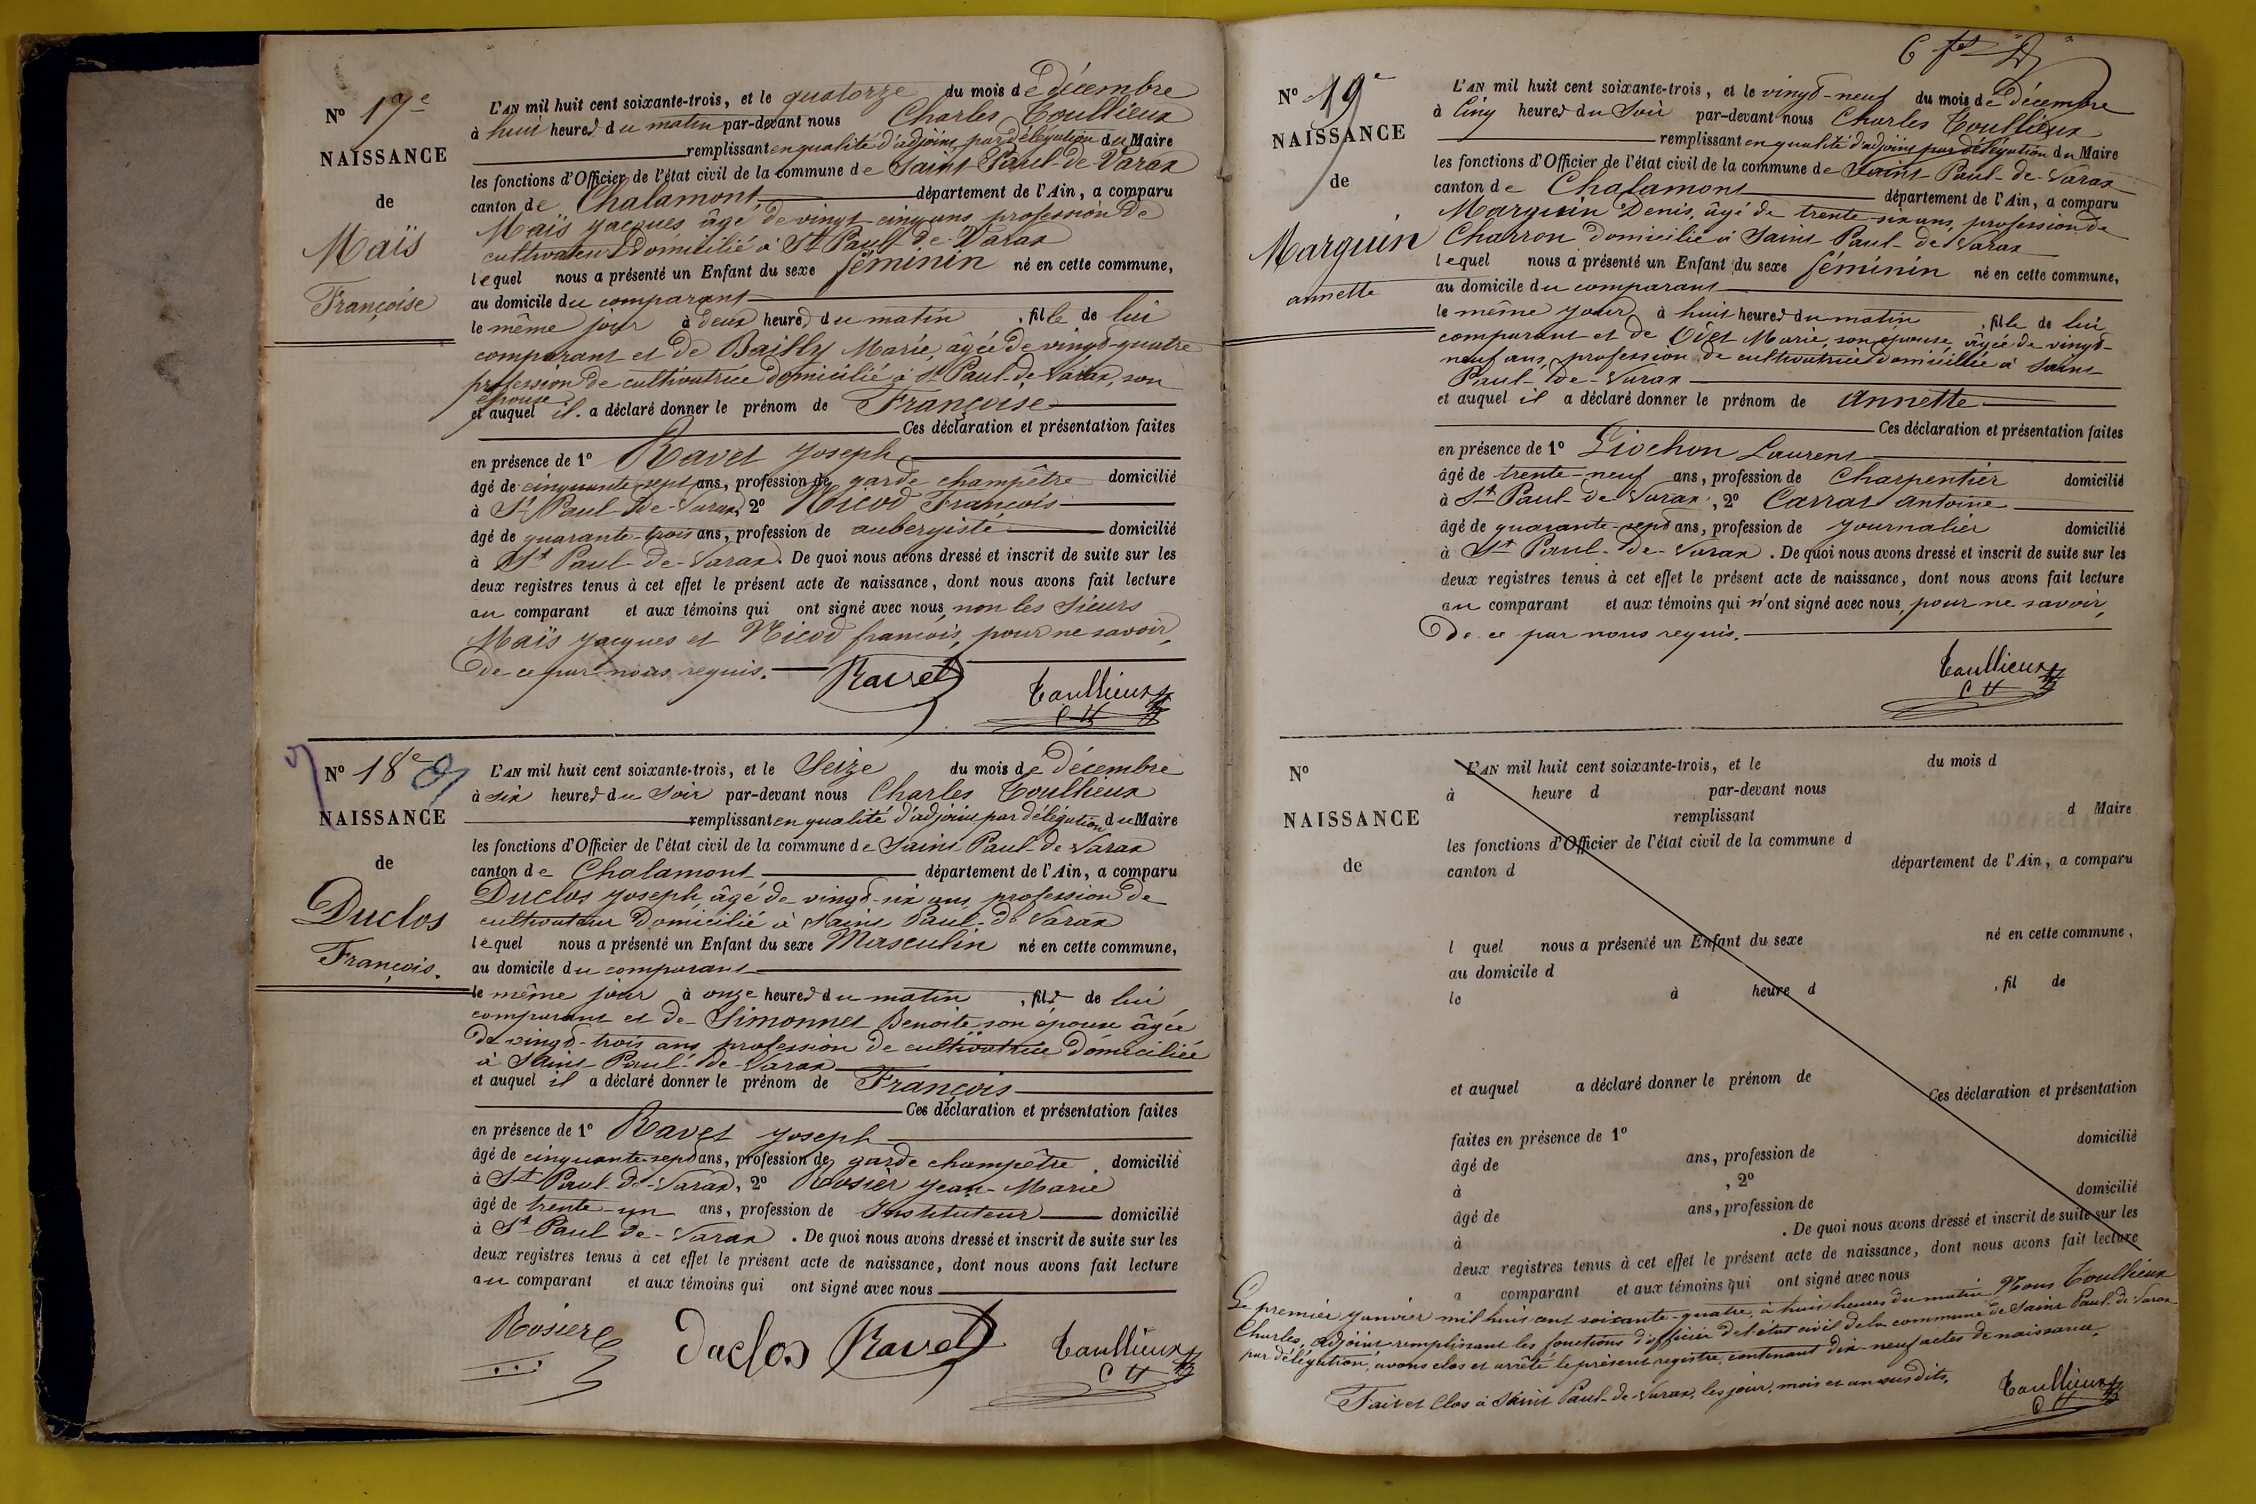 N° 17e
NAISSANCE
de
Maïs
Françoise
L'AN mil huit cent soixante-trois, et le quatorze du mois de décembre
à huit heures du matin par-devant nous Charles Toullieux
remplissant en qualité d'adjoint par délégation du Maire
les fonctions d'Officier de l'état civil de la commune de Saint Paul-de-Varax
canton de Chalamont département de l'Ain, a comparu
Maïs Jacques, âgé de vingt-cinq ans, profession de
cultivateur domicilié à St Paul-de-Varax
lequel nous a présenté un Enfant du sexe féminin né en cette commune,
au domicile du comparant
le même jour à deux heures du matin, fille de lui
comparant et de Bailly Marie, âgée de vingt-quatre
profession de cultivatrice domicilié à St Paul-de-Varax, son
épouse
et auquel il a déclaré donner le prénom de Françoise
Ces déclaration et présentation faites
en présence de 1° Ravet Joseph
âgé de cinquante-sept ans, profession de garde champêtre domicilié
à St Paul-de-Varax, 2° Nicod François
âgé de quarante-trois ans, profession de aubergiste domicilié
à St Paul-de-Varax. De quoi nous avons dressé et inscrit de suite sur les
deux registres tenus à cet effet le présent acte de naissance, dont nous avons fait lecture
au comparant et aux témoins qui ont signé avec nous, non les sieurs
Maïs Jacques et Nicod françois, pour ne savoir,
de ce par nous requis.
Ravet Toullieux
CH
N° 18e
NAISSANCE
de
Duclos
François.
L'AN mil huit cent soixante-trois, et le Seize du mois de décembre
à six heures du soir par-devant nous Charles Toullieux
remplissant en qualité d'adjoint par délégation du Maire
les fonctions d'Officier de l'état civil de la commune de Saint Paul-de-Varax
canton de Chalamont département de l'Ain, a comparu
Duclos Joseph, âgé de vingt-six ans, profession de
cultivateur domicilié à Saint Paul-de Varax
lequel nous a présenté un Enfant du sexe Masculin né en cette commune,
au domicile du comparant
le même jour à onze heures du matin, fils de lui
comparant et de Simonnet Benoite son épouse âgée
de vingt-trois ans profession de cultivatrice domiciliée
à Saint-Paul-de-Varax
et auquel il a déclaré donner le prénom de François
Ces déclaration et présentation faites
en présence de 1° Ravet Joseph
âgé de cinquante-sept ans, profession de garde champêtre. domicilié
à St Paul-de-Varax, 2° Rosier Jean-Marie
âgé de trente-un ans, profession de Instituteur domicilié
à St Paul de-Varax. De quoi nous avons dressé et inscrit de suite sur les
deux registres tenus à cet effet le présent acte de naissance, dont nous avons fait lecture
au comparant et aux témoins qui ont signé avec nous
Rosier Duclos Ravet Toullieux
CH
N° 19e
NAISSANCE
de
Marguin
annette
L'AN mil huit cent soixante-trois, et le vingt-neuf du mois de décembre
à Cinq heures du Soir par-devant nous Charles Toullieux
remplissant en qualité d'adjoint par délégation du Maire
les fonctions d'Officier de l'état civil de la commune de Saint-Paul-de-Varax
canton de Chalamont département de l'Ain, a comparu
Marguin Denis, âgé de trente-six ans, profession de
Charron domicilié à Saint Paul-de Varax
lequel nous a présenté un Enfant du sexe féminin né en cette commune,
au domicile du comparant
le même jour à huit heures du matin, fille de lui
comparant et de Odet Marie, son épouse, âgée de vingt-
neuf ans, profession de cultivatrice domiciliée à Saint-
Paul-de-Varax
et auquel il a déclaré donner le prénom de Annette
Ces déclaration et présentation faites
en présence de 1° Giochon Laurent
âgé de trente-neuf ans, profession de Charpentier domicilié
à St Paul-de Varax, 2° Carrat Antoine
âgé de quarante-sept ans, profession de Journalier domicilié
à St Paul-de-Varax. De quoi nous avons dressé et inscrit de suite sur les
deux registres tenus à cet effet le présent acte de naissance, dont nous avons fait lecture
au comparant et aux témoins qui n'ont signé avec nous, pour ne savoir,
de ce par nous requis.
Toullieux
CH
N°
NAISSANCE
de
L'AN mil huit cent soixante-trois, et le du mois d
à heure d par-devant nous
remplissant d Maire
les fonctions d'Officier de l'état civil de la commune d
canton d département de l'Ain, a comparu
l quel nous a présenté un Enfant du sexe né en cette commune,
au domicile d
le à heure d, fil de
et auquel a déclaré donner le prénom de
Ces déclaration et présentation
faites en présence de 1°
âgé de ans, profession de domicilié
à, 2°
âgé de ans, profession de domicilié
à. De quoi nous avons dressé et inscrit de suite sur les
deux registres tenus à cet effet le présent acte de naissance, dont nous avons fait lecture
a comparant et aux témoins qui ont signé avec nous
Le premier Janvier mil huit cent soixante-quatre, à huit heures du matin Nous Toullieux
Charles, adjoint remplissant les fonctions d'officier de l'état civil de la commune de Saint Paul-de-Varax
par délégation, avons clos et arrêté le présent registre, contenant dix-neuf actes de naissance.
Fait et Clos à Saint Paul-de-Varax, les jour, mois et an susdits.
Toullieux
CH